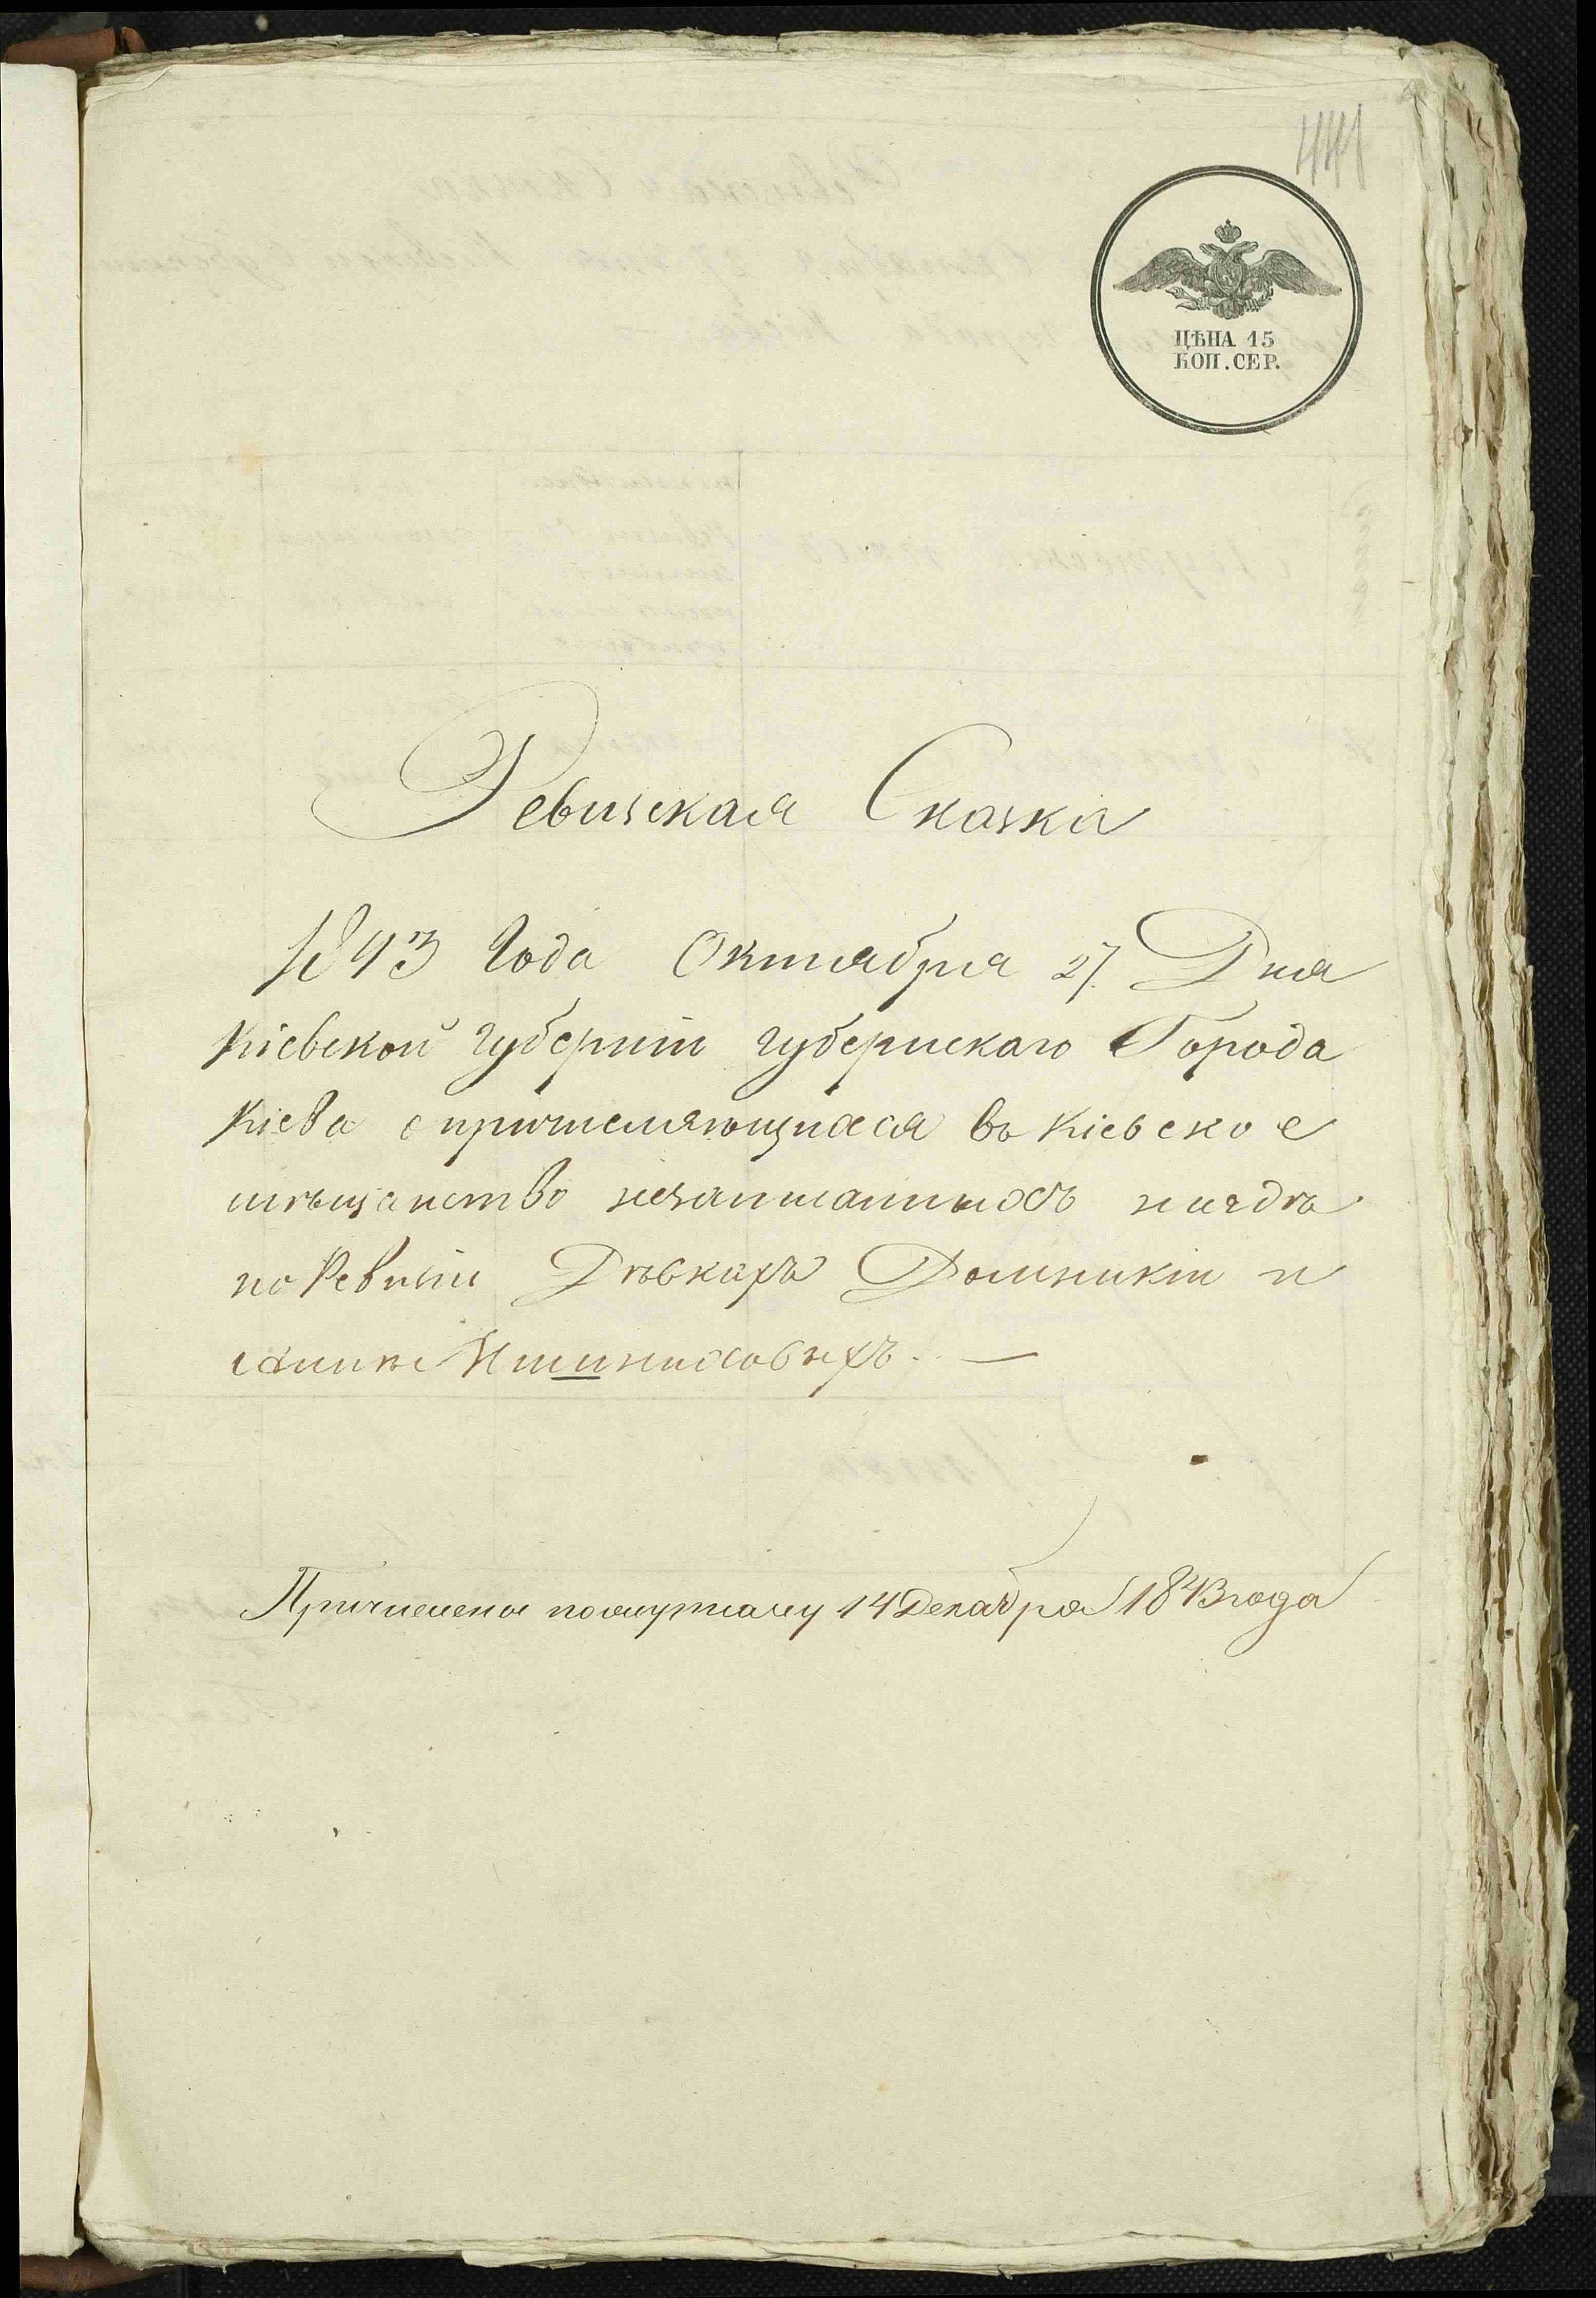 441
ЦѢНА 15
КОП. СЕР.
Ревизская Сказка
1843 Года Октября 27. Дня
Кіевской Губерніи губернскаго Города
Кіева о причисляющихся въ Кіевское
мѣщанство незаписанныхъ нигдѣ
по Ревизіи Дѣвкахъ Домникіи и
Аннѣ
Причислены по журналу 14 Декабря 1843 года